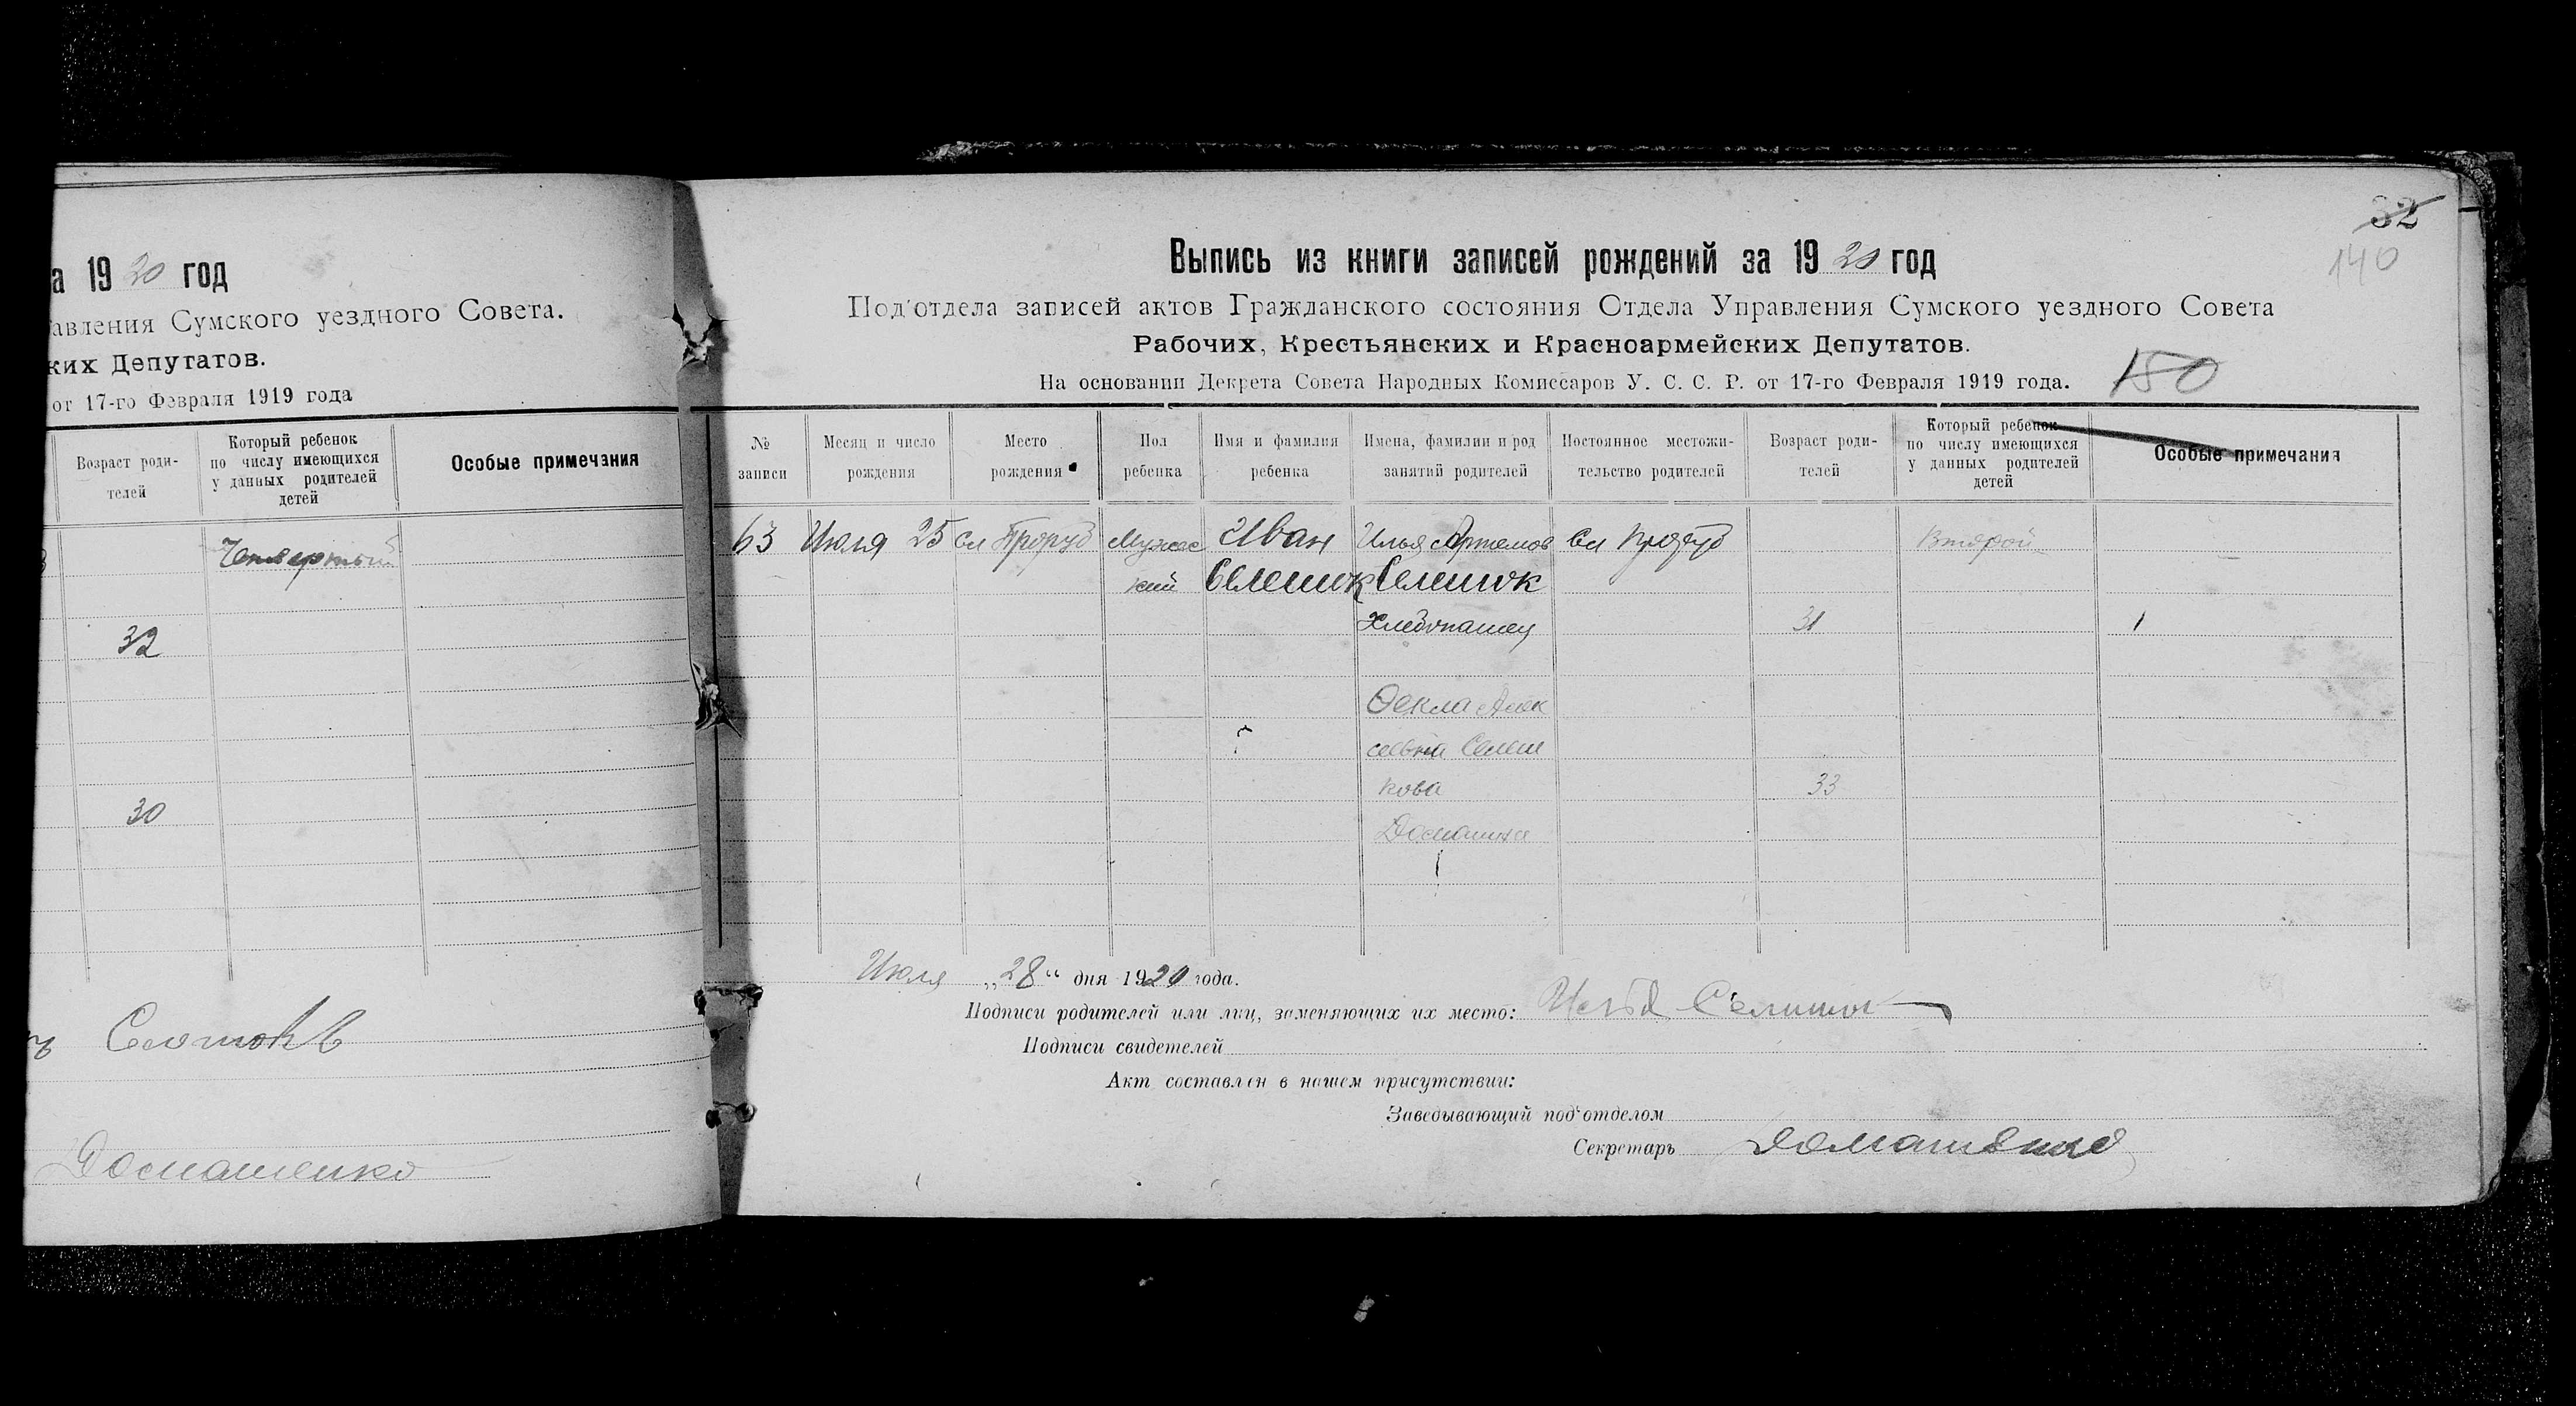 а 1920 год
авления Сумского уездного Совета.
ких Депутатов.
от 17-го Февраля 1919 года
Возраст роди-
телей
Который ребенок
по числу имеющихся
у данных родителей
детей
Особые примечания
Четвертый
32
30
Домашенко
32
140
Выпись из книги записей рождений за 1920 год
Под'отдела записей актов Гражданского состояния Отдела Управления Сумского уездного Совета
Рабочих, Крестьянских и Красноармейских Депутатов.
На основании Декрета Совета Народных Комиссаров У. С. С. Р. от 17-го Февраля 1919 года.
150
№
записи
Месяц и число
рождения
Место
рождения
Пол
ребенка
Имя и фамилия
ребенка
Имена, фамилии и род
занятий родителей
Постоянное местожи-
тельство родителей
Возраст роди-
телей
Который ребенок
по числу имеющихся
у данных родителей
детей
Особые примечания
63 Июля 25 Сл Проруб Мужес Иван Илья Артемов Сл Проруб Второй
кий Селешок Селешок
Хлебопашец 31
Фекла Алек
сеевна Селеш
кова 33
Домашняя
Июля „28“ дня 1920 года.
Подписи родителей или лиц, заменяющих их место: Илья Селишок
Подписи свидетелей
Акт составлен в нашем присутствии:
Заведывающий под'отделом
Секретарь Домашенко